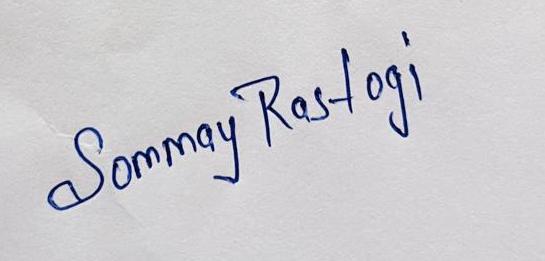 Sommay Rastogi